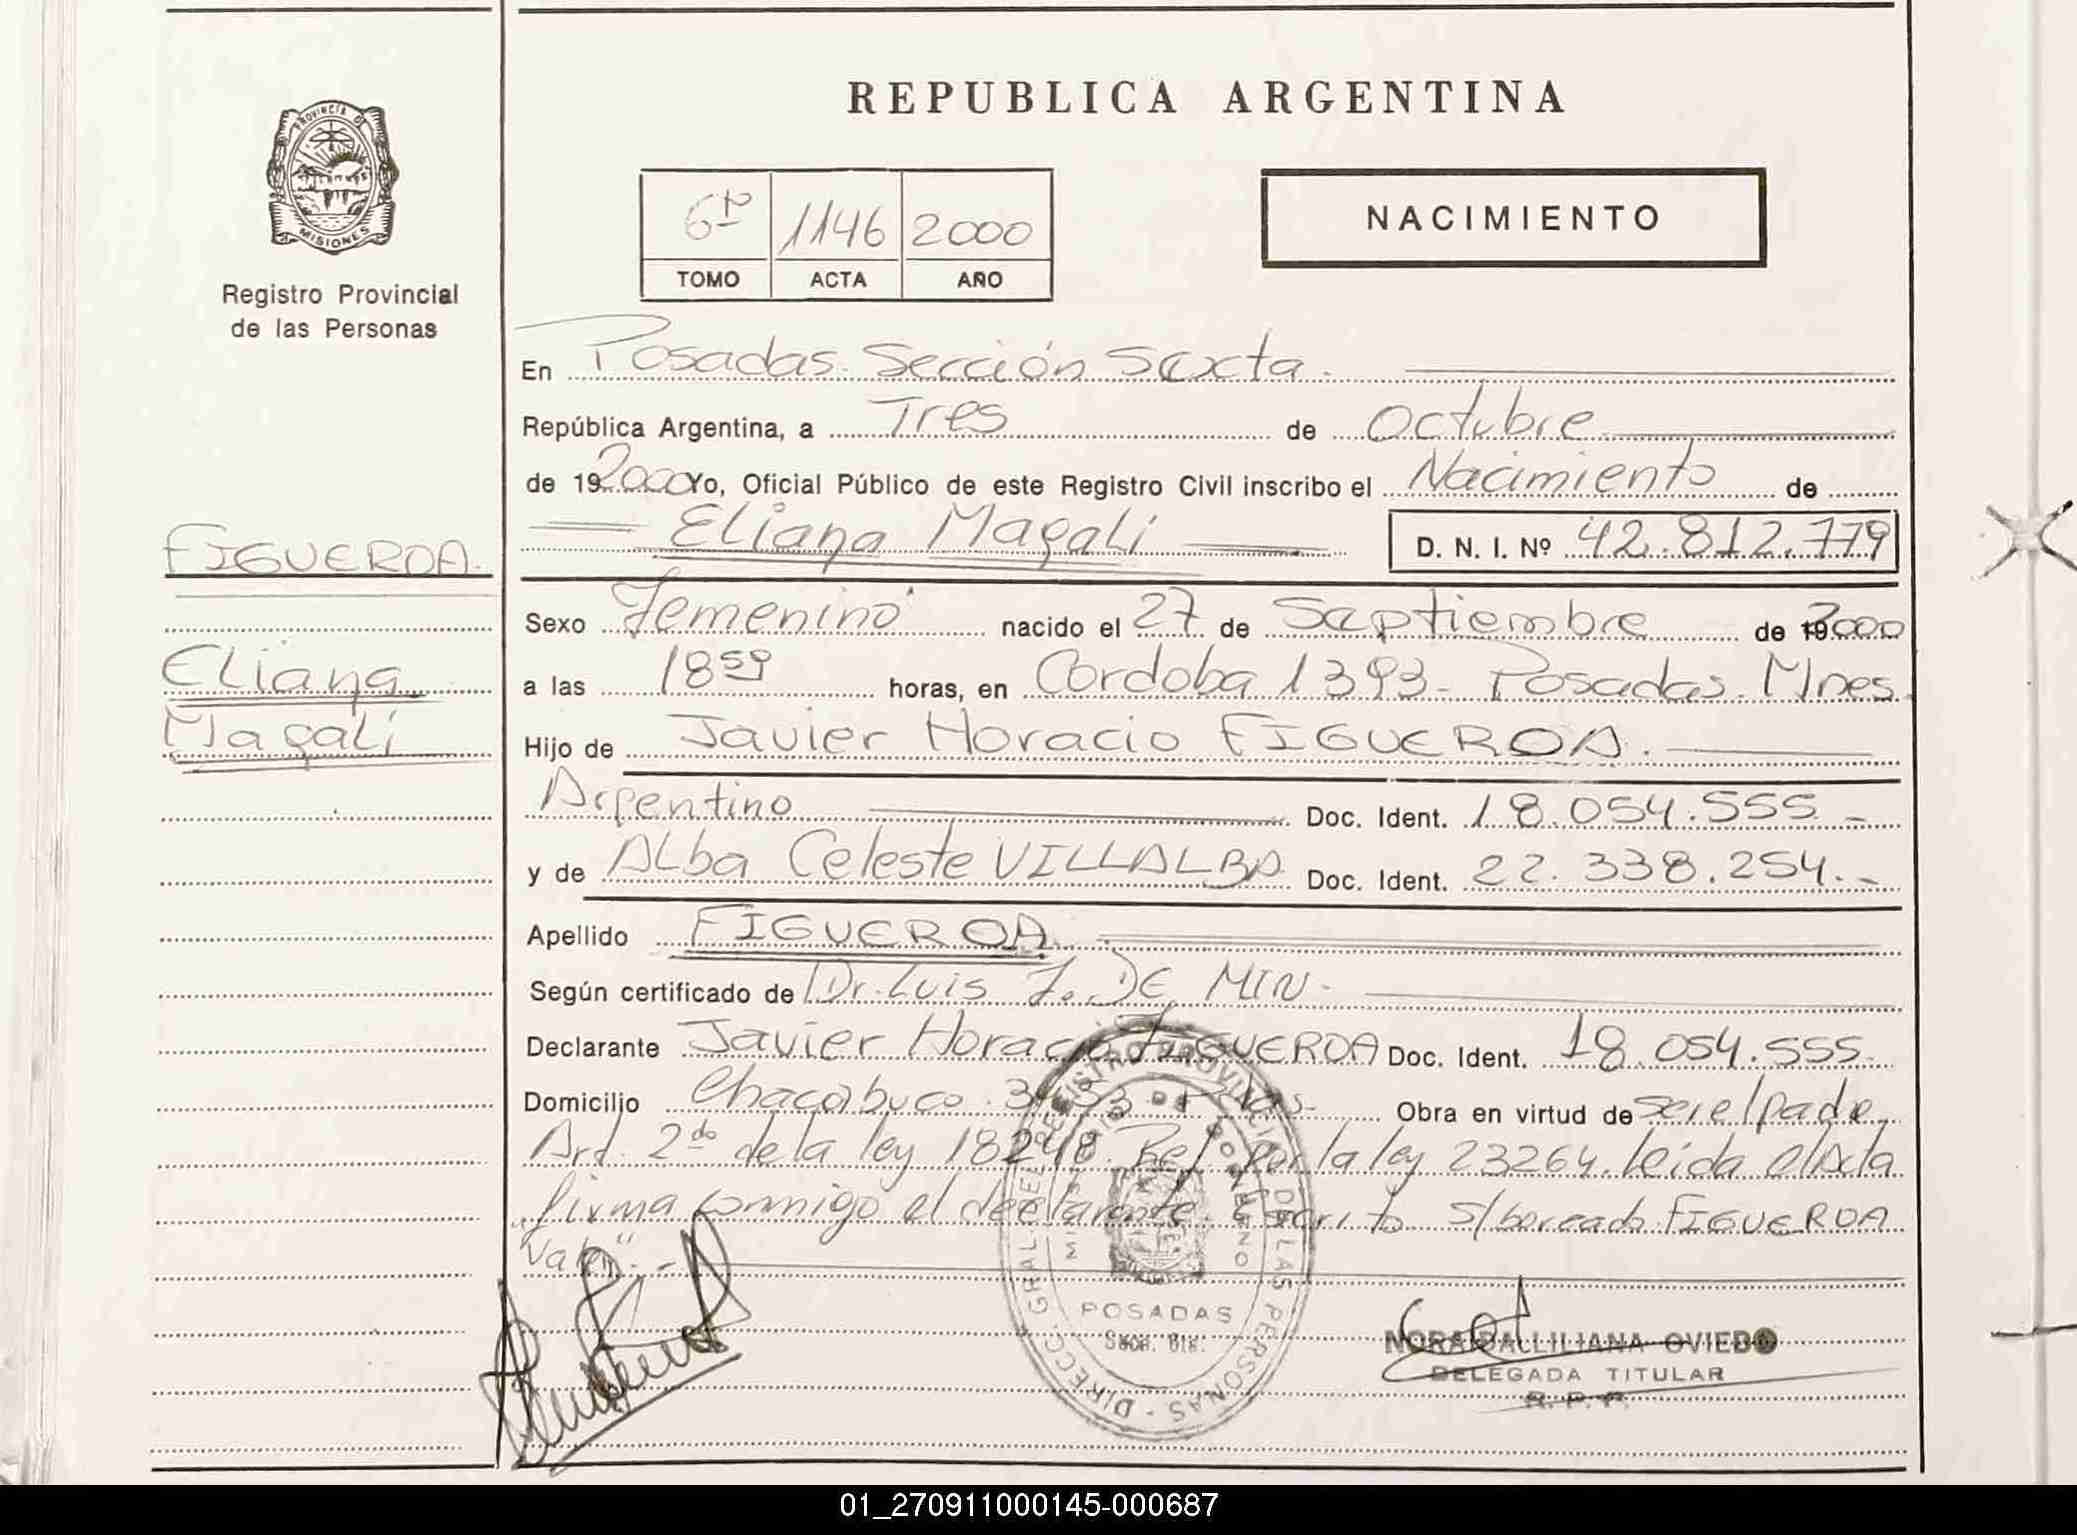 REPUBLICA ARGENTINA
PROVINCIA DE
MISIONES
Registro Provincial
de las Personas
6to 1146 2000
TOMO ACTA AÑO
NACIMIENTO
En Posadas. Sección Sexta.
República Argentina, a Tres de Octubre
de 192000 Yo, Oficial Público de este Registro Civil inscribo el Nacimiento de
Eliana Magalí D. N. I. Nº 42.812.779
FIGUEROA.
Eliana
Magalí
Sexo Femenino nacido el 27 de Septiembre de 2000
a las 18 59 horas, en Cordoba 1393 - Posadas. Mnes.
Hijo de Javier Horacio FIGUEROA.
Argentino Doc. Ident. 18.054.555 -
y de Alba Celeste VILLALBA Doc. Ident. 22.338.254. -
Apellido FIGUEROA
Según certificado de Dr. Luis J. DE MIN.
Declarante Javier Horacio FIGUEROA Doc. Ident. 18.054.555.
Domicilio Chacabuco Obra en virtud de ser el padre
Art. 2do de la ley 18248. Ref. por la ley 23264. leida el Acta
firma conmigo el declarante. Escrito s/borcado FIGUEROA
"Vale". -
DIRECC. GRAL. DEL REGISTRO PROVINCIAL DE LAS PERSONAS
POSADAS
NORA LILIANA OVIEDO
DELEGADA TITULAR
R. P. P.
01_270911000145-000687